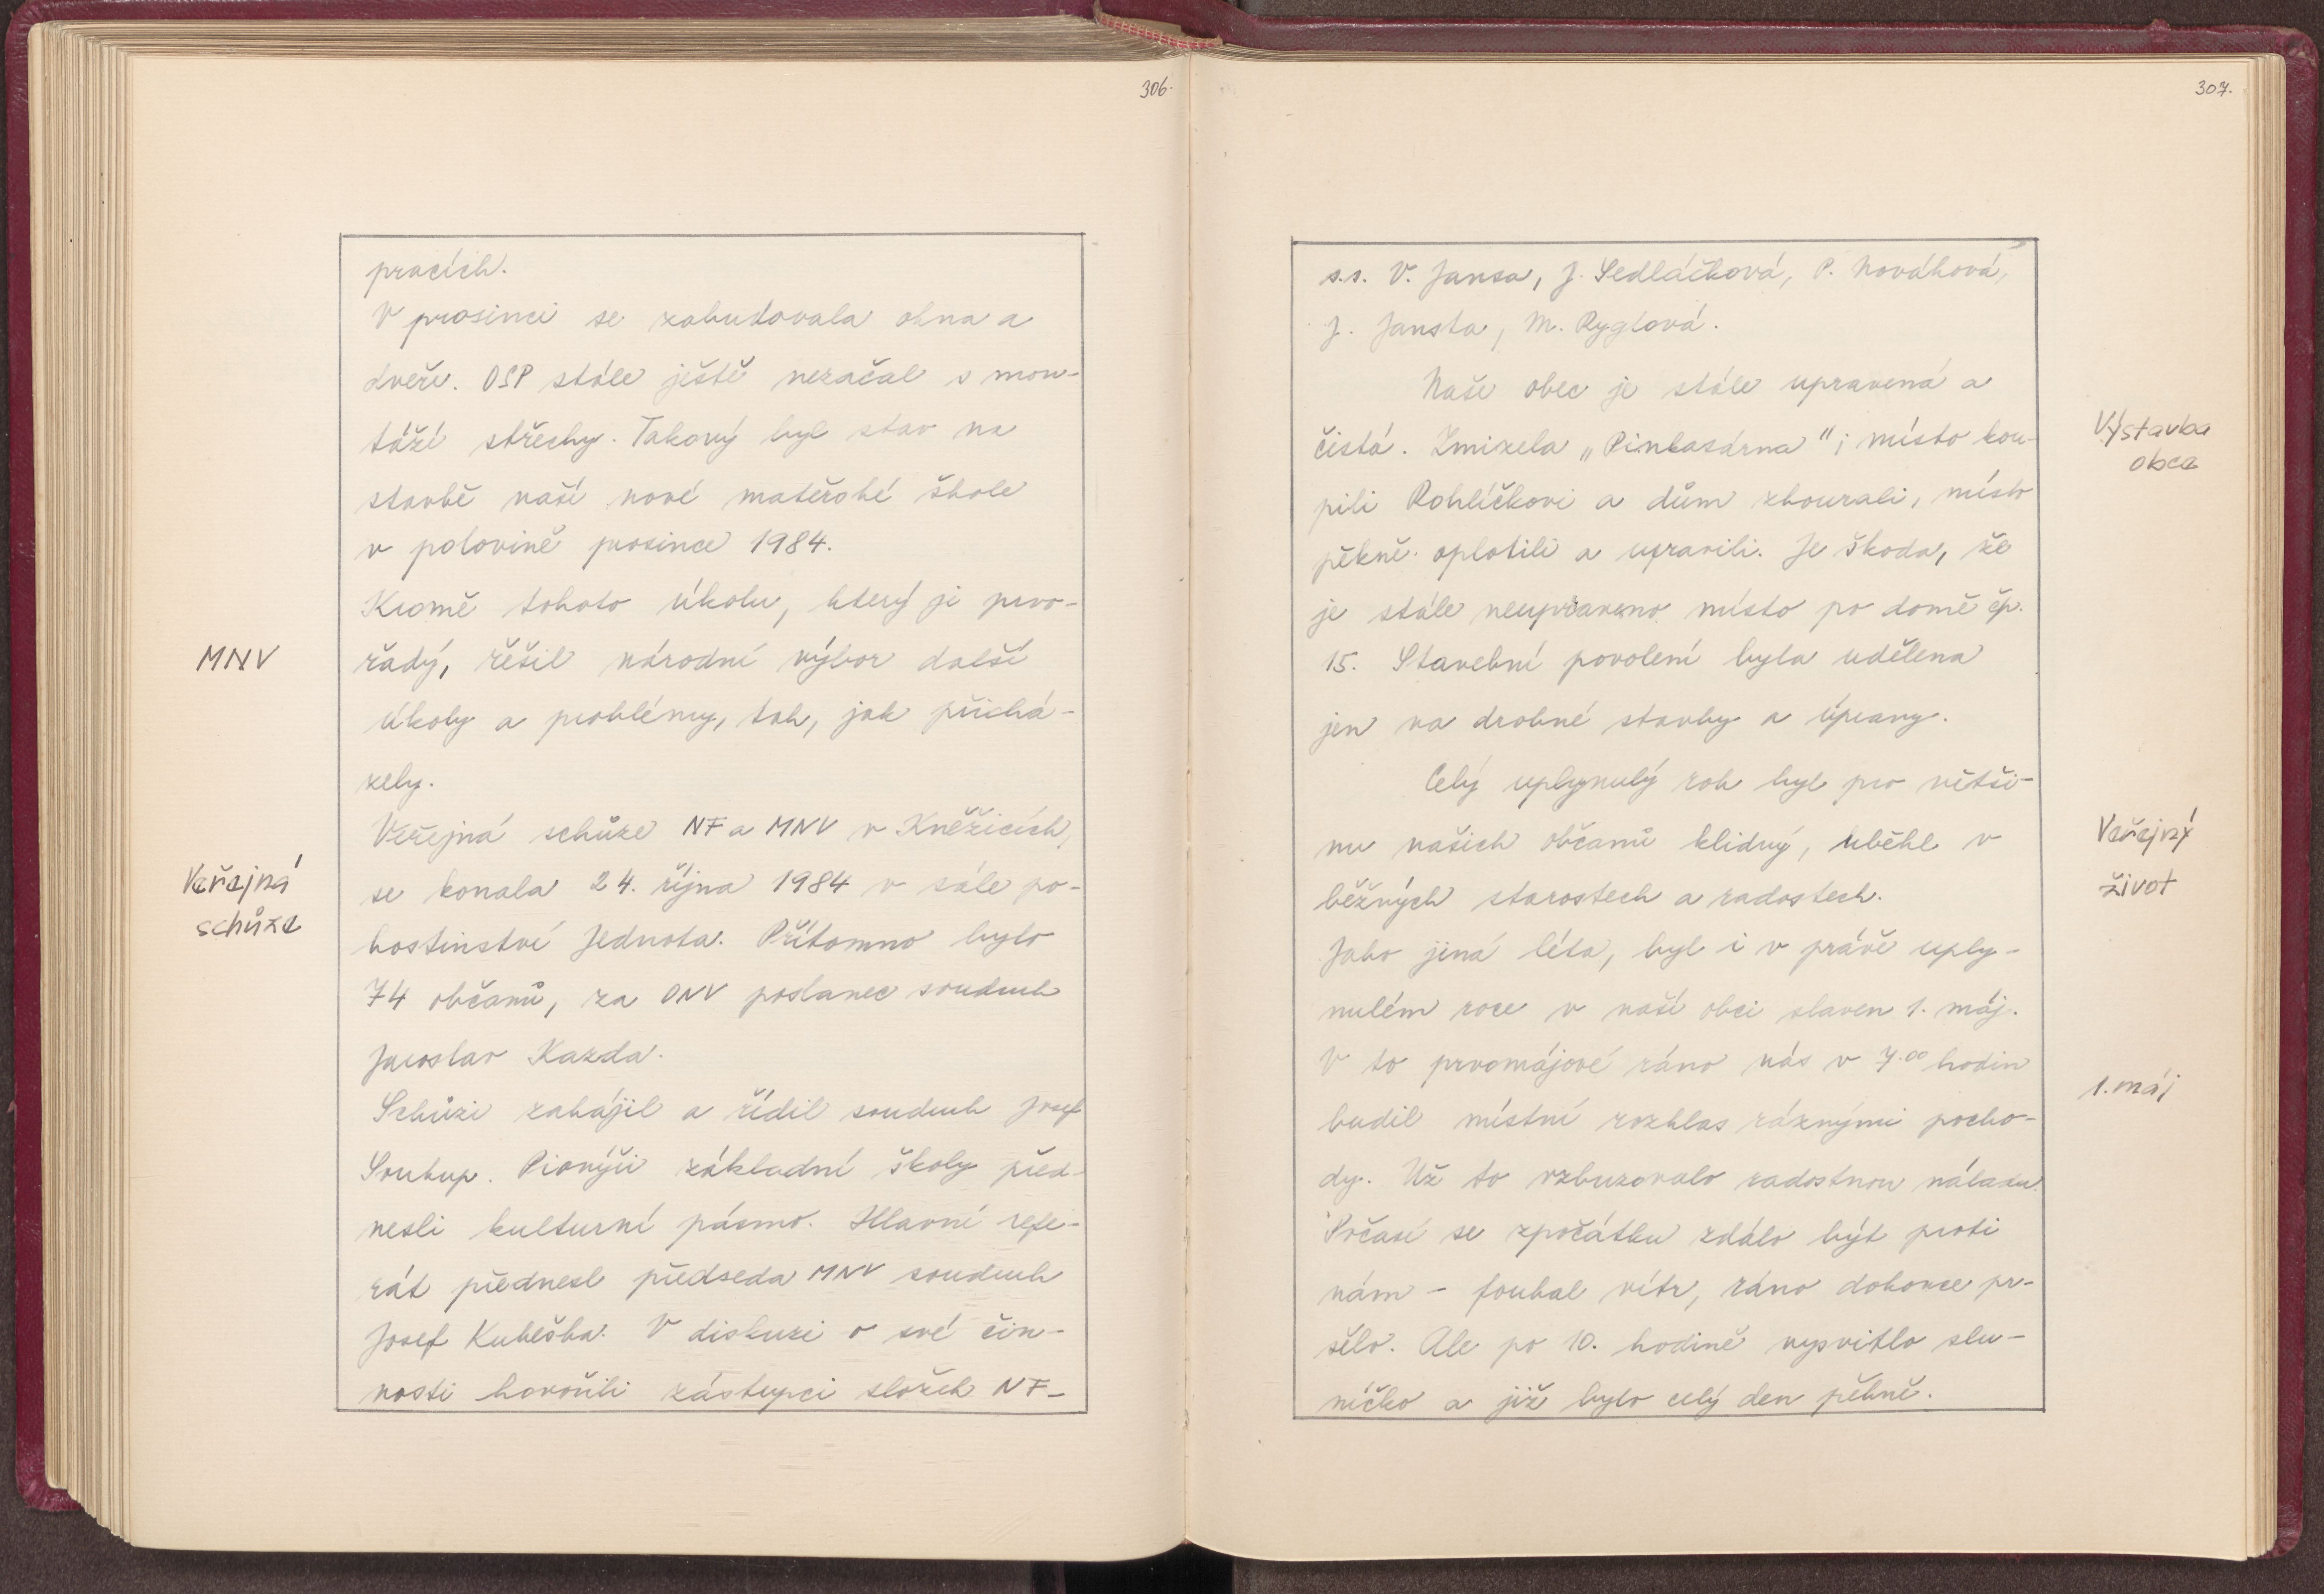 306.
pracích.
V prosinci se zabudovala okna a
dveře. OSP stále ještě nezačal s mon-
táží střechy. Takový byl stav na
stavbě naší nové mateřské škole
v polovině prosince 1984.
Kromě tohoto úkolu, který je prvo-
MNV
řadý, řešil národní výbor další
úkoly a problémy, tak, jak přichá-
zely.
Veřejná schůze NF a MNV v Kněžicích,
Veřejná
schůze
se konala 24. října 1984 v sále po-
hostinství Jednota. Přítomno bylo
74 občanů, za ONV poslanec soudruh
Jaroslav Kazda.
Schůzi zahájil a řídil soudruh Josef
Soukup. Pionýři základní školy před-
nesli kulturní pásmo. Hlavní refe-
rát přednesl předseda MNV soudruh
Josef Kubeška. V diskuzi o své čin-
nosti hovořili zástupci složek NF-
307.
s.s. V. Jansa, J. Sedláčková, P. Nováková,
J. Jansta, M. Ryglová.
Naše obec je stále upravená a
Výstavba
obce
čistá. Zmizela „Pinkasárna"; místo kou-
pili Rohlíčkovi a dům zbourali, místo
pěkně oplotili a upravili. Je škoda, že
je stále neupraveno místo po domě čp.
15. Stavební povolení byla udělena
jen na drobné stavby a úpravy.
Celý uplynulý rok byl pro větši-
Veřejný
život
nu našich občanů klidný, uběhl v
běžných starostech a radostech.
Jako jiná léta, byl i v právě uply-
nulém roce v naší obci slaven 1. máj.
V to prvomájové ráno nás v 7.00 hodin
1. máj
budil místní rozhlas ráznými pocho-
dy. Už to vzbuzovalo radostnou náladu.
Počasí se zpočátku zdálo být proti
nám - foukal vítr, ráno dokonce pr-
šelo. Ale po 10. hodině vysvitlo slu-
níčko a již bylo celý den pěkně.